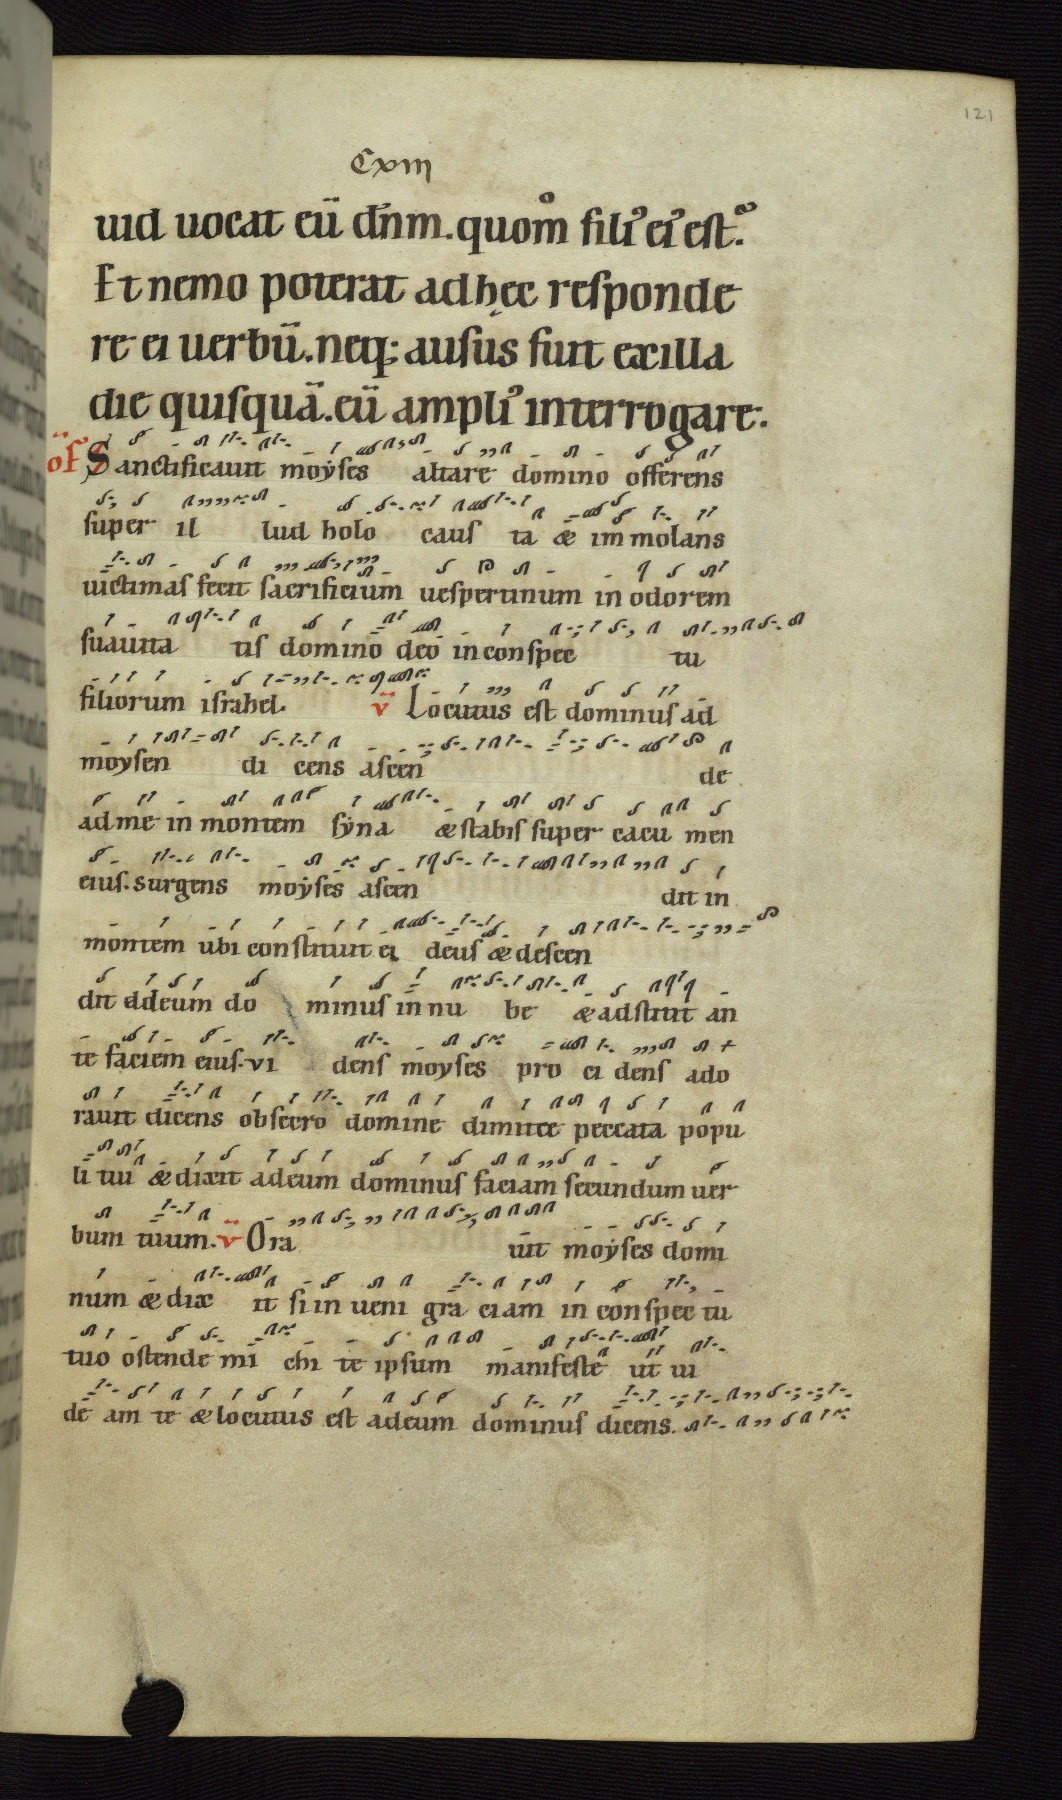 121
Cxiii
uid uocat eū dn̄m. quom̊ fili᾽ ei᾽ est.᾽
Et nemo poterat ad hęc responde
re ei uerbū. neq; ausus fuit ex illa
die quisquā. eū ampli᾽ interrogare.
of Sanctificauit moẏses altare domino offerens
super il lud holo caus ta & im molans
uictimas fecit sacrificium uespertinum in odorem
suauita tis domino deo in conspec tu
filiorum israhel. v̈ Locutus est dominus ad
moysen di cens ascen de
ad me in montem sẏna & stabis super cacu men
eius. Surgens moẏses ascen dit in
montem ubi constituit ei deus & descen
dit ad eum do minus in nu be & adstitit an
te faciem eius. vi dens moyses pro ci dens ado
rauit dicens obsecro domine dimitte peccata popu
li tui & dixit ad eum dominus faciam secundum uer
bum tuum. v̈ Ora uit moẏses domi
num & dix it si in ueni gra ciam in conspec tu
tuo ostende mi chi te ipsum manifeste ut ui
de am te & locutus est ad eum dominus dicens.